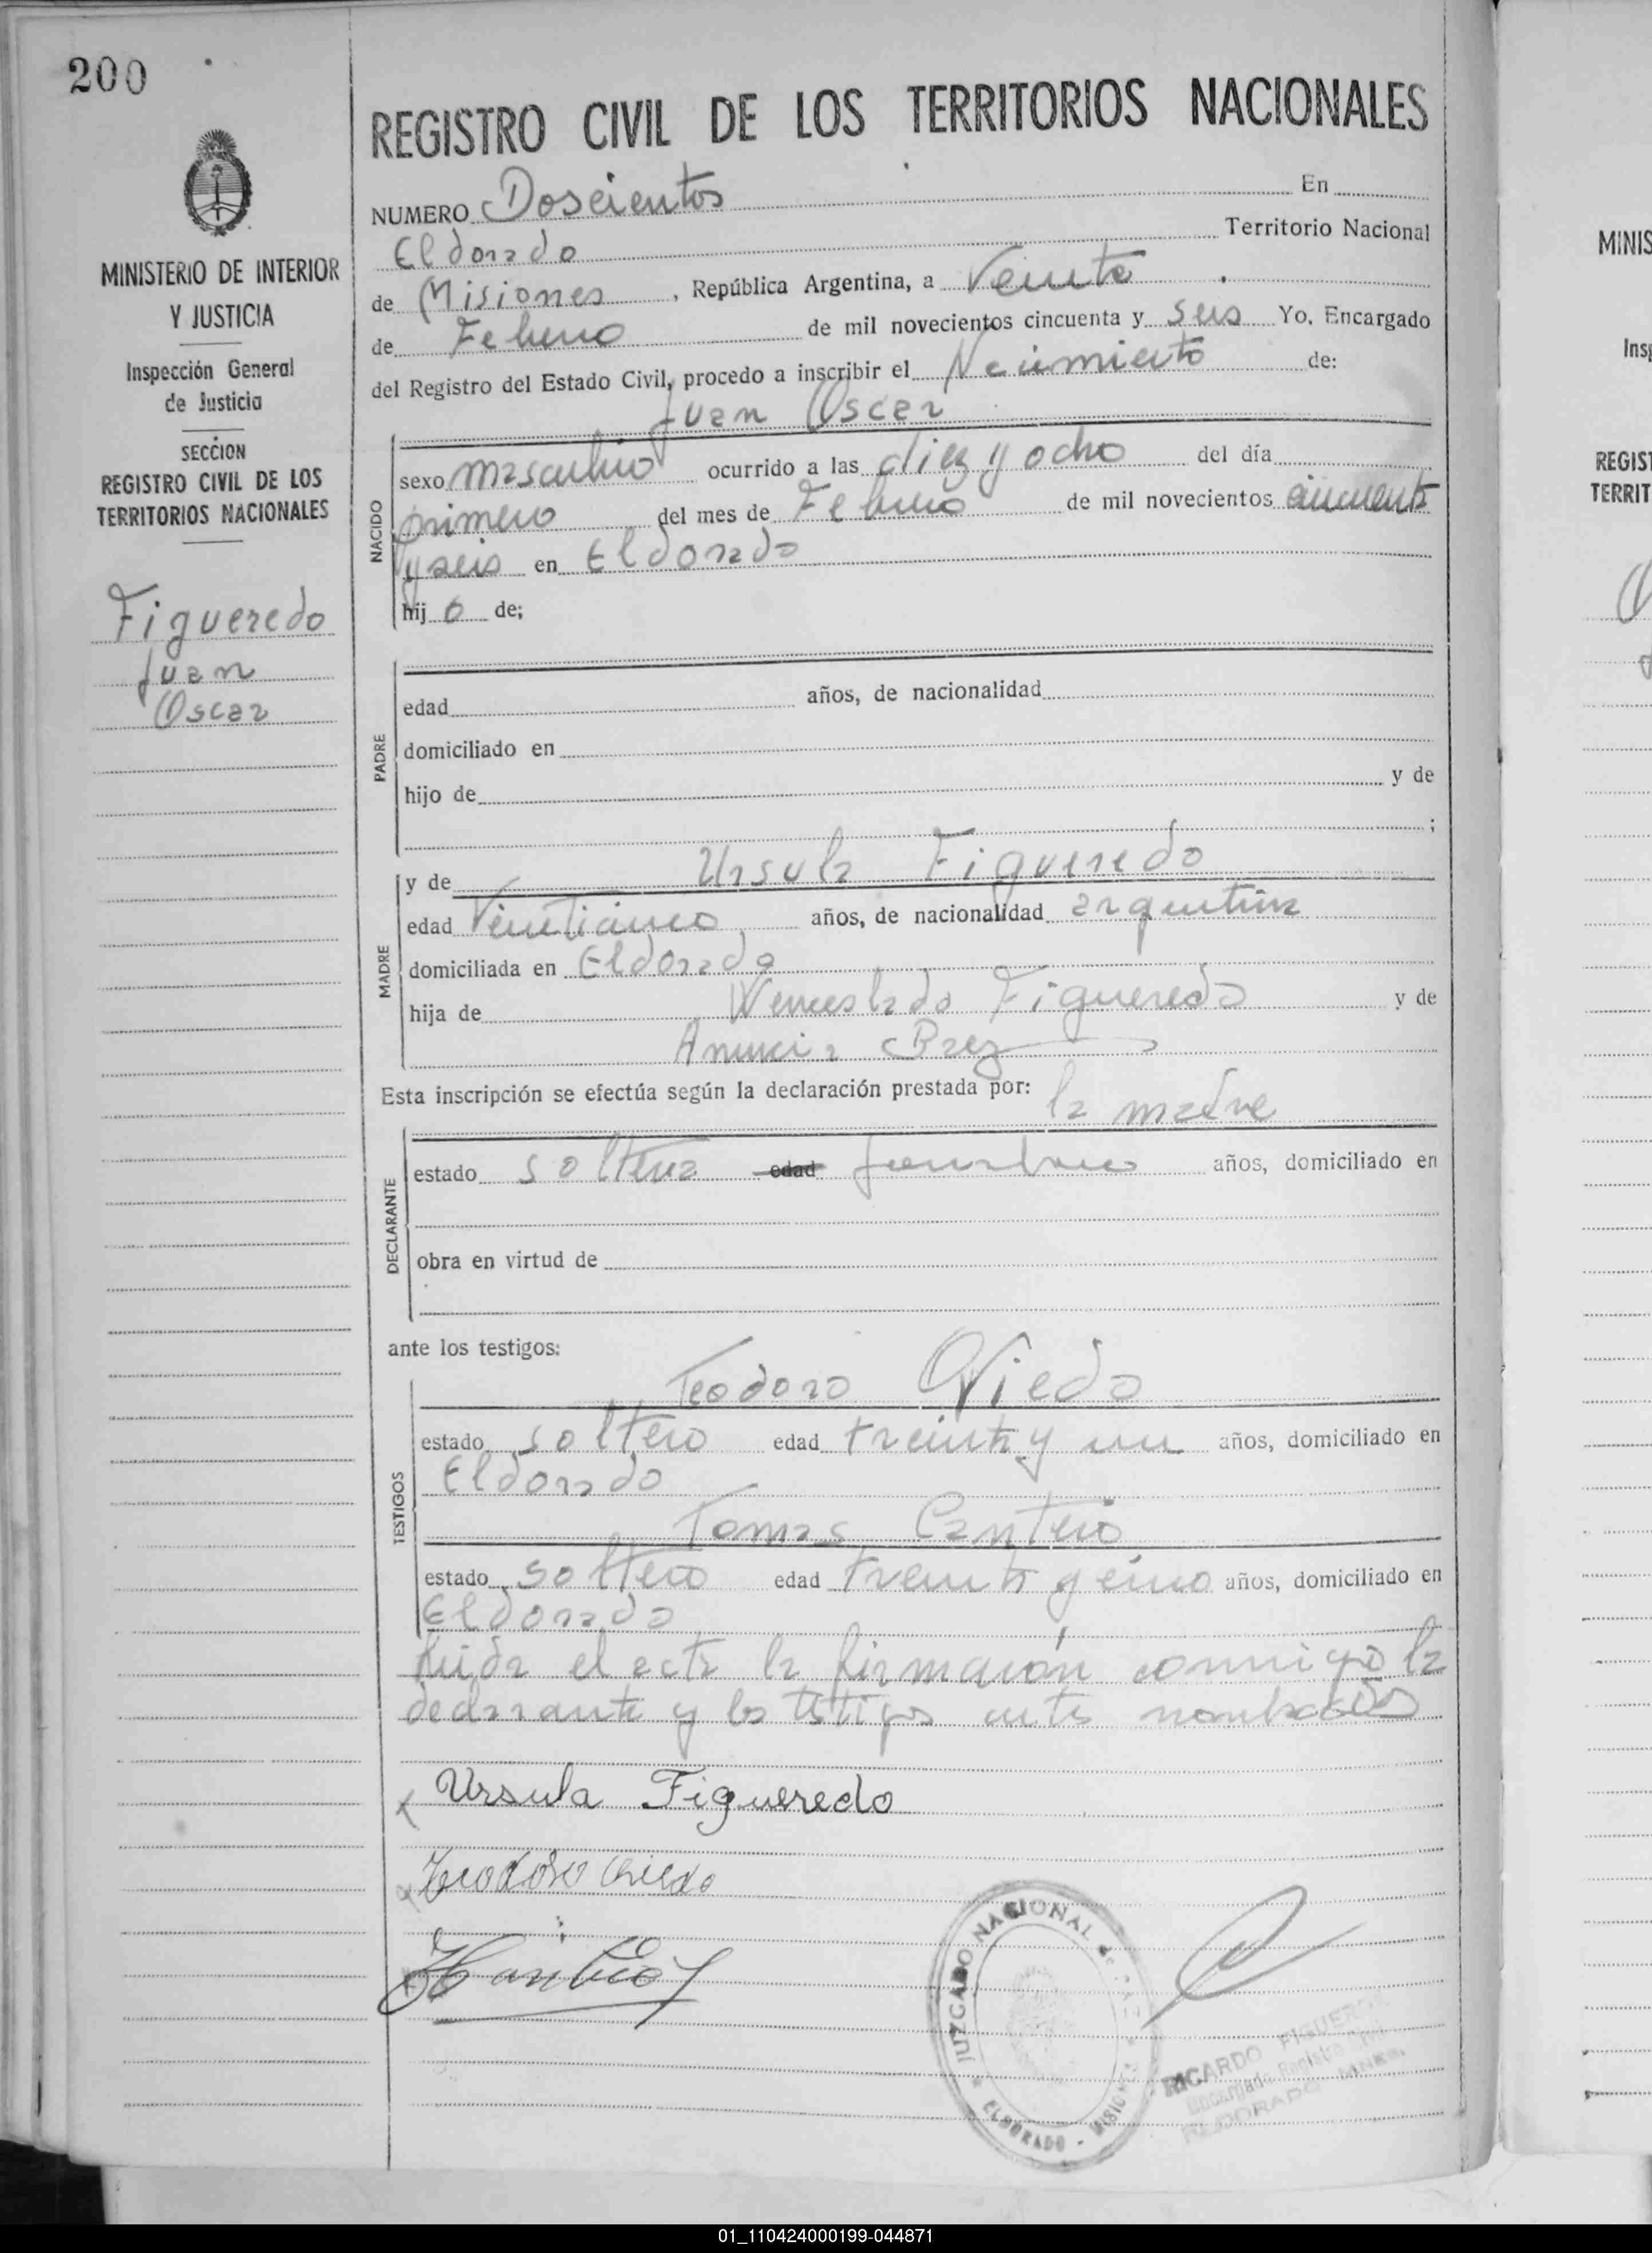 200
REGISTRO CIVIL DE LOS TERRITORIOS NACIONALES
MINISTERIO DE INTERIOR
Y JUSTICIA
Inspección General
de Justicia
SECCION
REGISTRO CIVIL DE LOS
TERRITORIOS NACIONALES
Figueredo
Juan
Oscar
NUMERO Doscientos En
Eldorado Territorio Nacional
de Misiones, República Argentina, a Veinte
de Febrero de mil novecientos cincuenta y seis Yo, Encargado
del Registro del Estado Civil, procedo a inscribir el Nacimiento de:
Juan Oscar
NACIDO
sexo masculino ocurrido a las diez y ocho del día
primero del mes de Febrero de mil novecientos cincuenta
y seis en Eldorado
hijo de;
PADRE
edad años, de nacionalidad
domiciliado en
hijo de y de
;
MADRE
y de Ursula Figueredo
edad Veinticinco años, de nacionalidad argentina
domiciliada en Eldorado
hija de Wenceslado Figueredo y de
Anuncia Baez
Esta inscripción se efectúa según la declaración prestada por:
la madre
DECLARANTE
estado soltera edad años, domiciliado en
obra en virtud de
ante los testigos:
Teodoro Oviedo
TESTIGOS
estado soltero edad treinta y un años, domiciliado en
Eldorado
Tomas Cantero
estado soltero edad treinta y cinco años, domiciliado en
Eldorado
el acta la firmaron conmigo la
declarante y los testigos antes nombrados
Ursula Figueredo
Teodoro Oviedo
JUZGADO NACIONAL de PAZ
ELDORADO - MISIONES
RICARDO
Encargado Registro Civil
ELDORADO
MINIS
Insp
REGIST
TERRIT
01_110424000199-044871